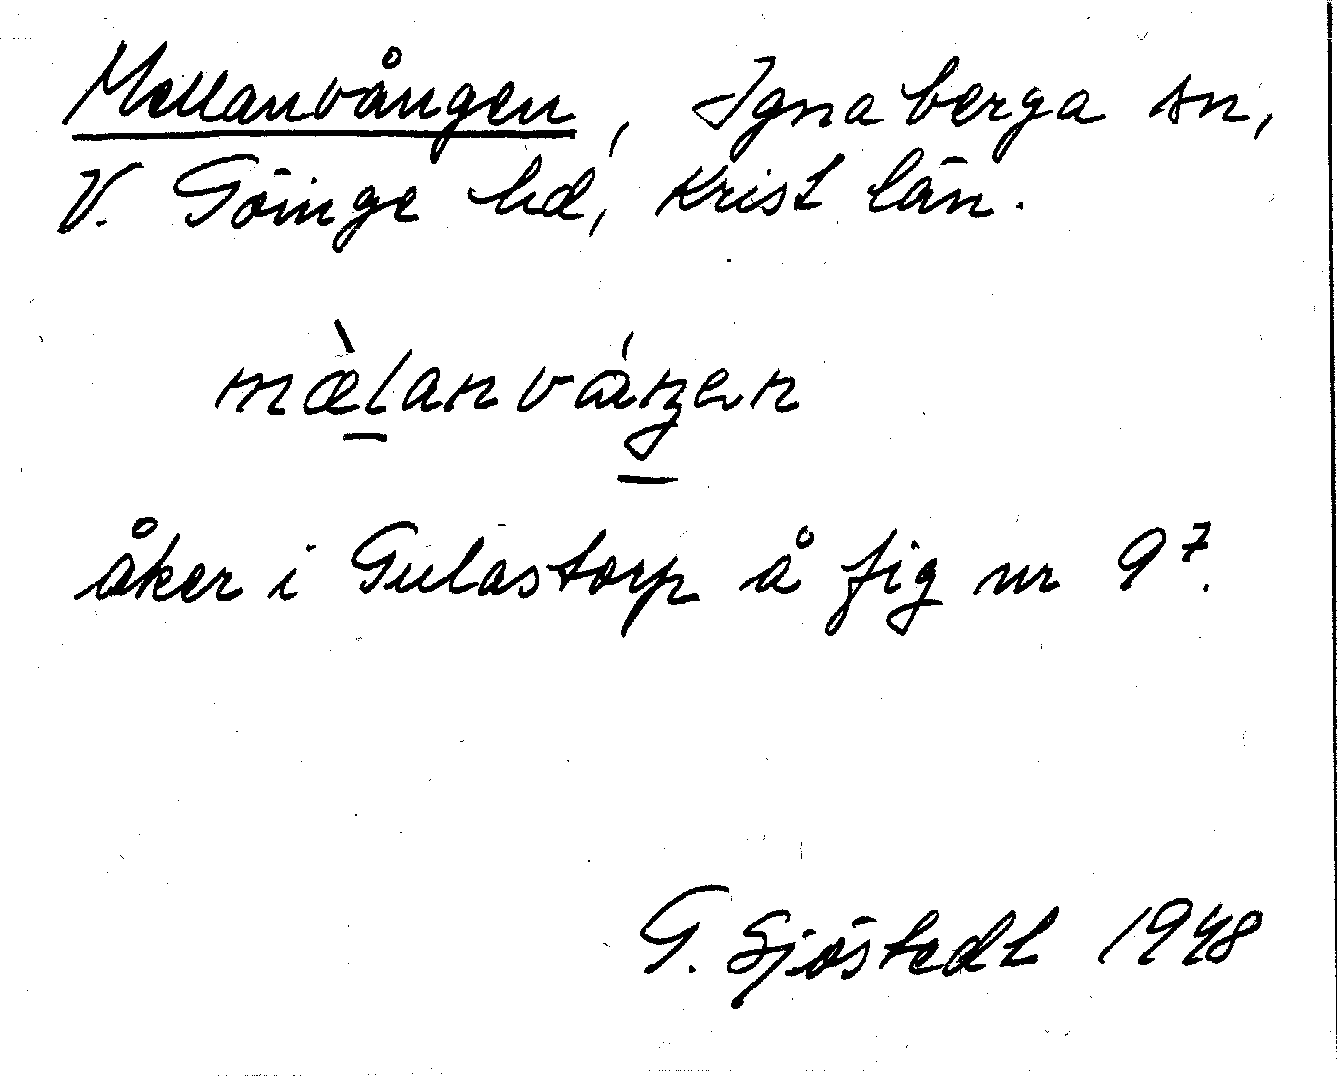 Mellanvången, Ignaberga sn,
V. Göinge hd, Krist län.
mæ̀lanváŋen
åker i Gulastorp å fig nr 9⁷.
G. Sjöstedt 1948